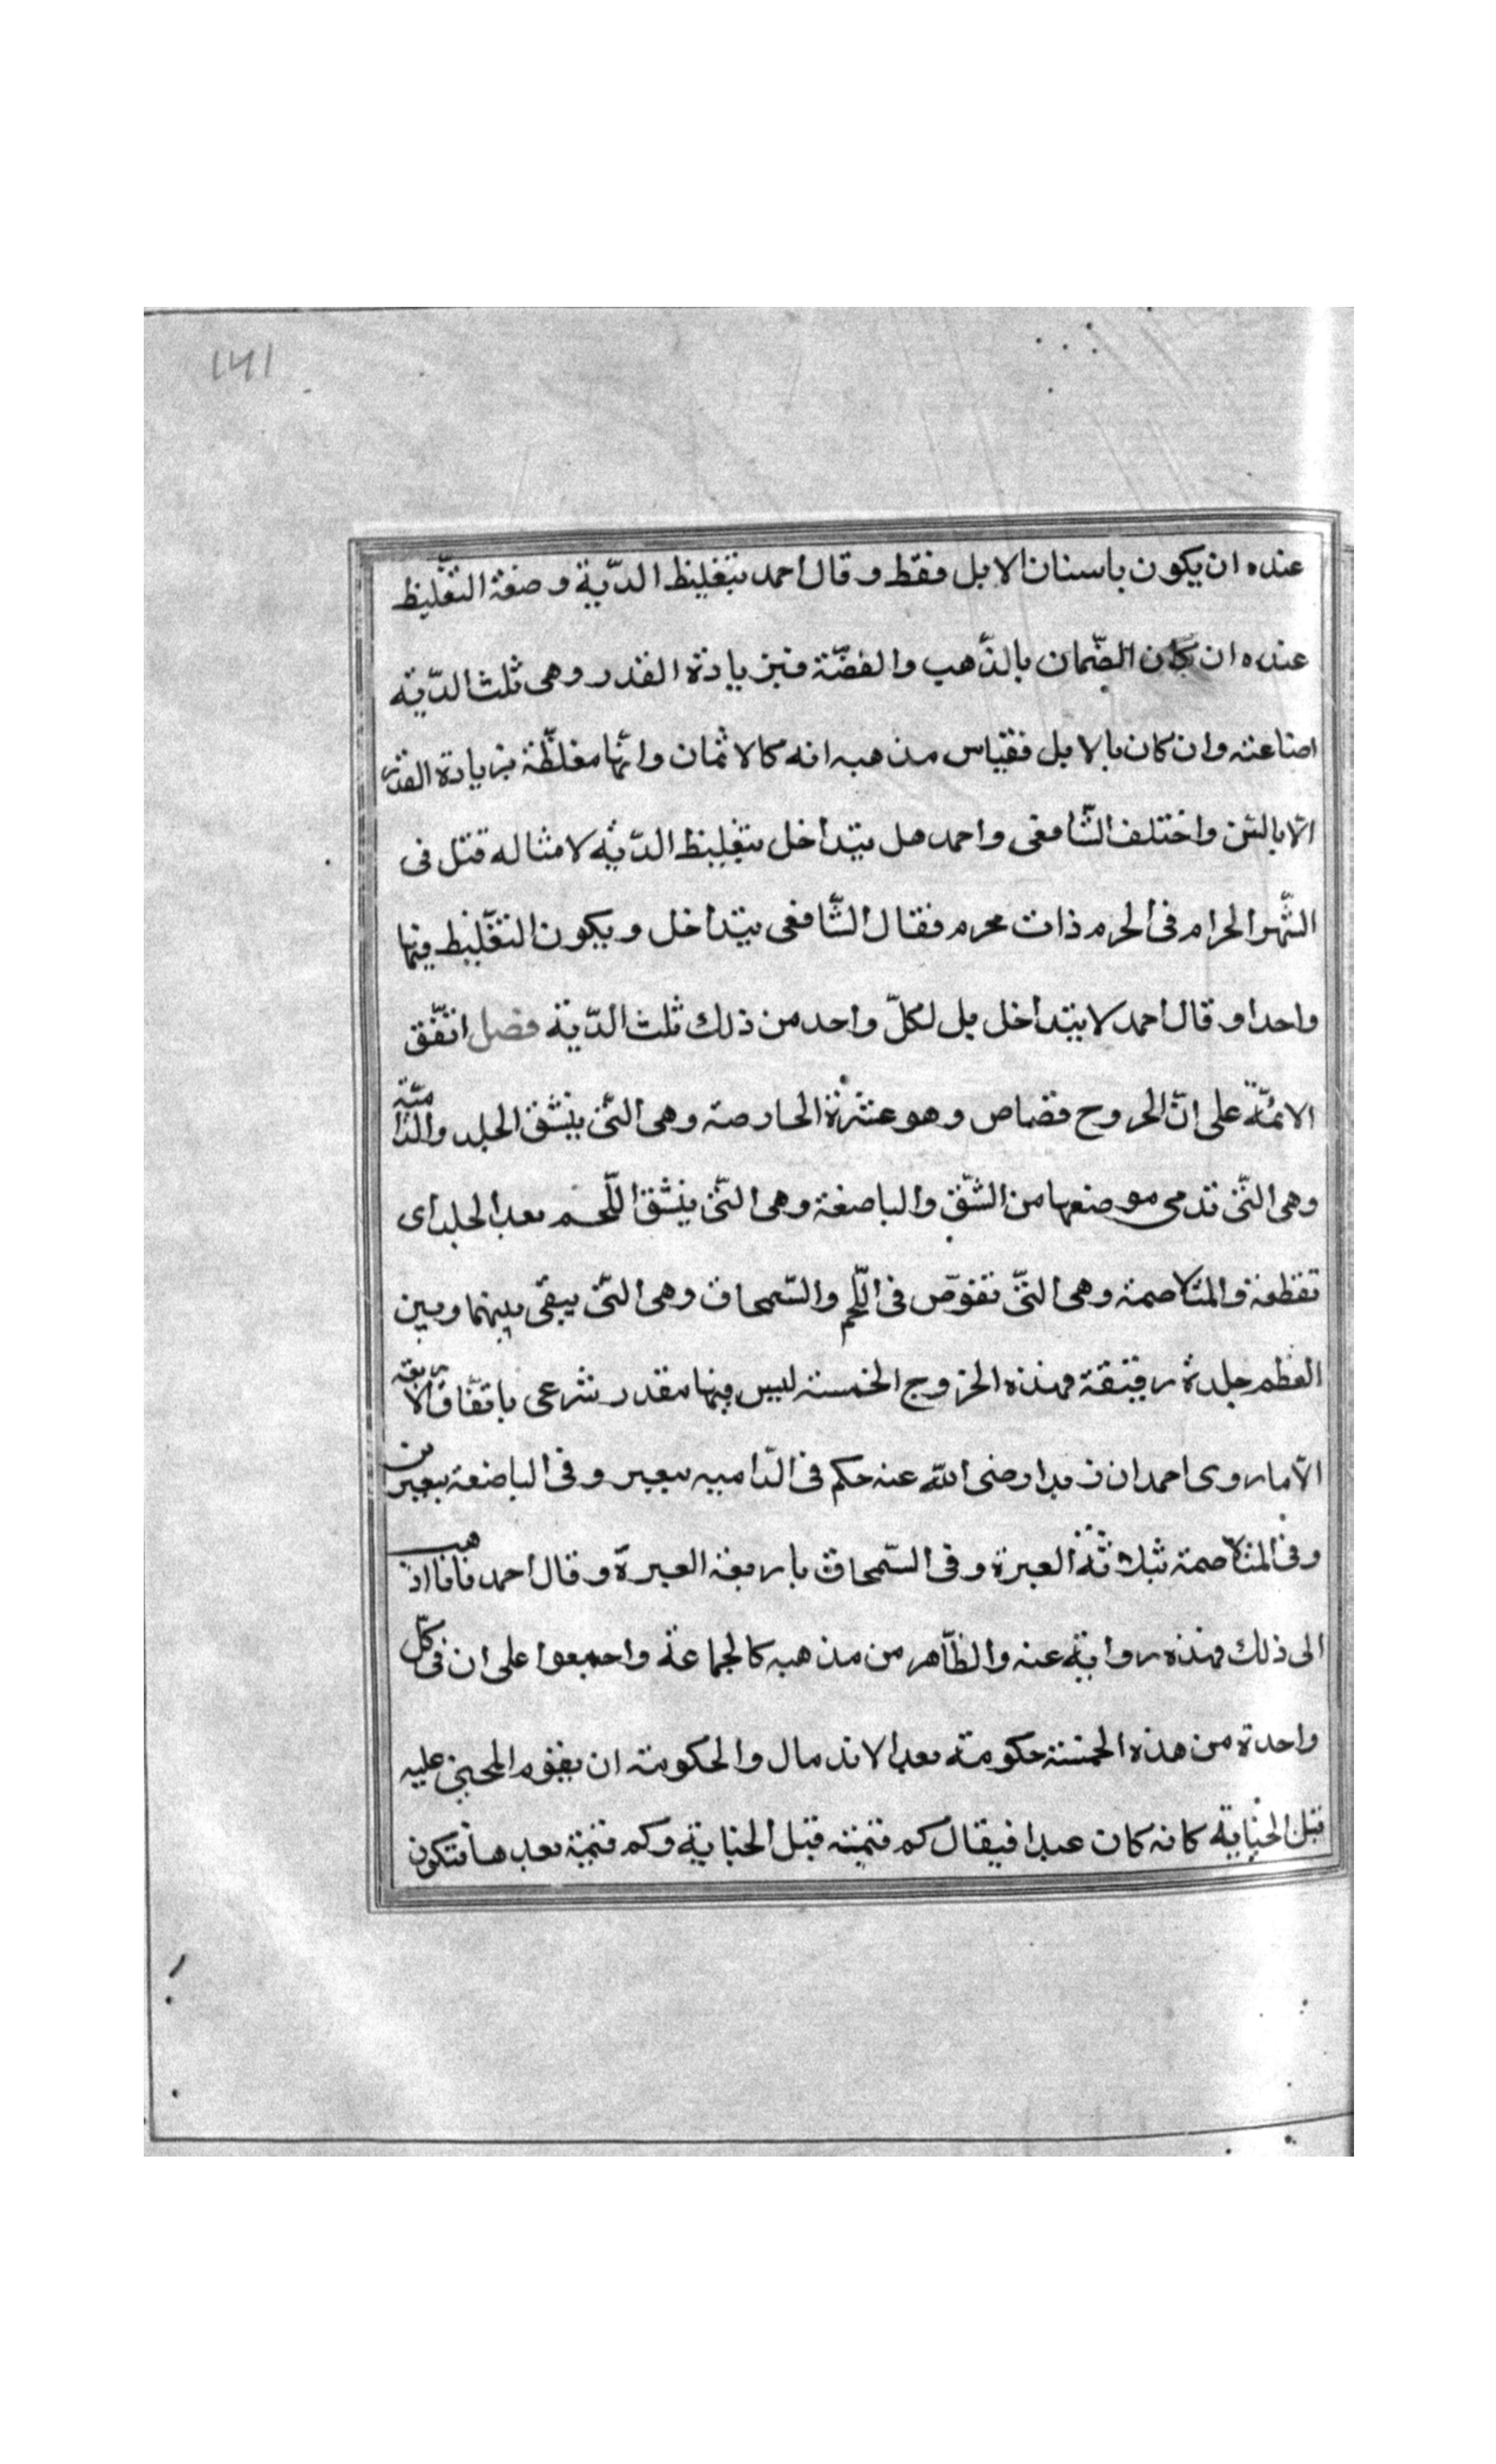 ١٦١
عنده ان يكون باسنان الابل فقط وقال احمد بتغليظ الدّية وصفة التغليظ
عنده ان كان الضّمان بالذّهب والفضّة فبزيادة القدر وهى ثلث الدّية
اصناعته وان كان بالابل فقياس مذهبه انه كالاثمان وانّها مغلظّة بزيادة القدر
الّا بالسّن واختلف الشّافعى واحمد هل يتداخل بتغليظ الدّية لامثاله قتل فى
الشّهر الحرام فى الحرم ذات محرم فقال الشّافعى يتداخل ويكون التغّليظ فيها
واحدا وقال احمد لا يتداخل بل لكلّ واحد من ذلك ثلث الدّية فصل اتفّق
الائمّة على انّ الجروح قصاص وهو عشرة الحارصة وهى التّى ينشّق الجلد والدّامية
وهى التّى تدمى موضعها من الشّق والباضعة وهى التّى ينشّق اللّحم بعد الجلد اى
تقطعة والمتلاحمة وهى التّى تغوّص فى اللّحم والسّمحاق وهى التّى يبقى بينهما وبين
العظم جلدة رقيقة فهذه الجزوج الخمسة ليس فيها مقدر شرعى باتفّاق الاربعة
الّا ما روى احمد ان زيدا رضى اللّه عنه حكم فى الدّاميه ببعير وفى الباضعة ببعيرين
وفى المتلاحمة بثلاثة العبرة وفى السّمحاق باربعة العبرة وقال احمد فانا اذهب
الى ذلك فهذه رواية عنه والظّاهر من مذهبه كالجماعة واجمعوا على ان فى كلّ
واحدة من هذه الخمسة حكومة بعد الاندمال والحكومة ان يقوم المجنى عليه
قبل الجناية كانه كان عبدا فيقال كم قيمته قبل الجناية وكم قيمة بعدها فتكون